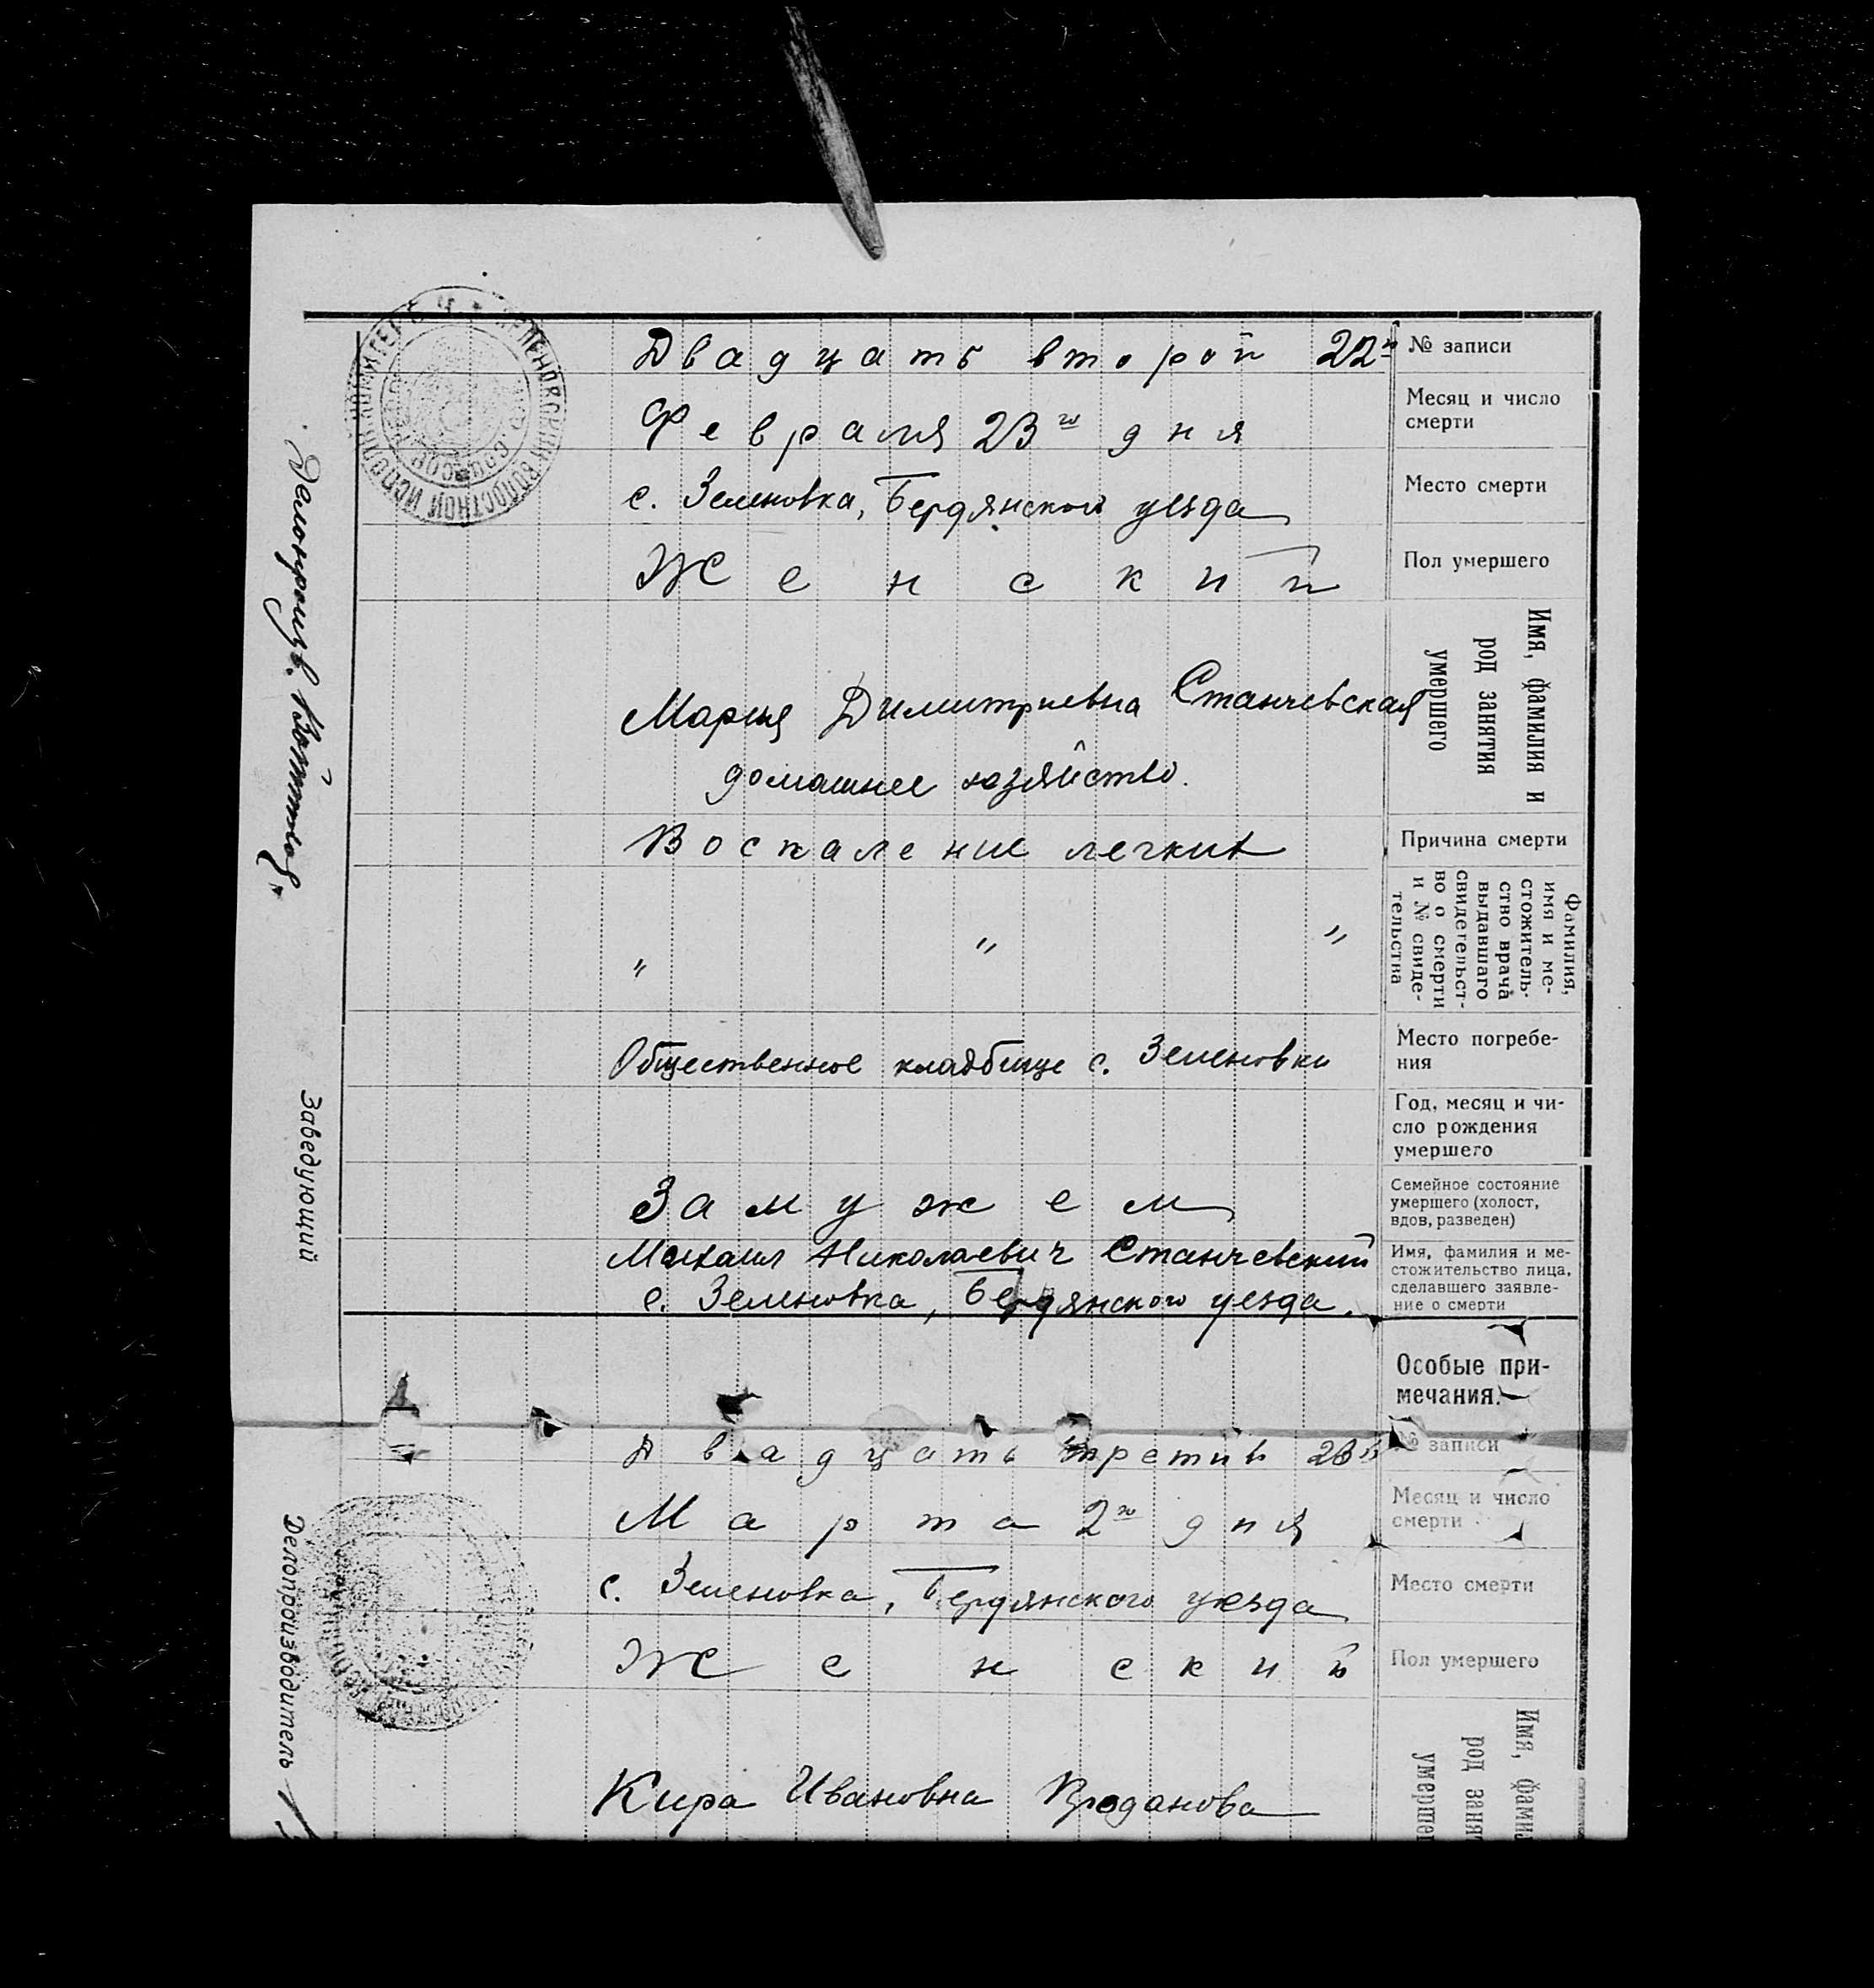 Двадцать второй 22й № записи
Февраля 23го дня Месяц и число смерти
с. Зеленовка, Бердянского уезда Место смерти
Женский Пол умершего
Имя, фамилия и
род занятия
умершего
Мария Димитриевна Станчевская
домашнее хозяйство.
Воспаление легких Причина смерти
Фамилия,
имя и ме-
стожитель-
ство врача
выдавшаго
свидетельст-
во о смерти
и № свиде-
тельства
" " "
Общественное кладбище с. Зеленовки
Место погребе-
ния
Год, месяц и чи-
сло рождения
умершего
Замужем
Семейное состояние
умершего (холост,
вдов, разведен)
Михаил Николаевич Станчевский
с. Зеленовка, Бердянского уезда.
Имя, фамилия и ме-
стожительство лица,
сделавшего заявле-
ние о смерти
Особые при-
мечания.
Двадцать третий 23й № записи
Марта 2го дня
Месяц и число
смерти
с. Зеленовка, Бердянского уезда Место смерти
Женский Пол умершего
Имя, фамил
род заня
умершег
Кира Ивановна
Делопроизв.
Заведующий
Делопроизводитель